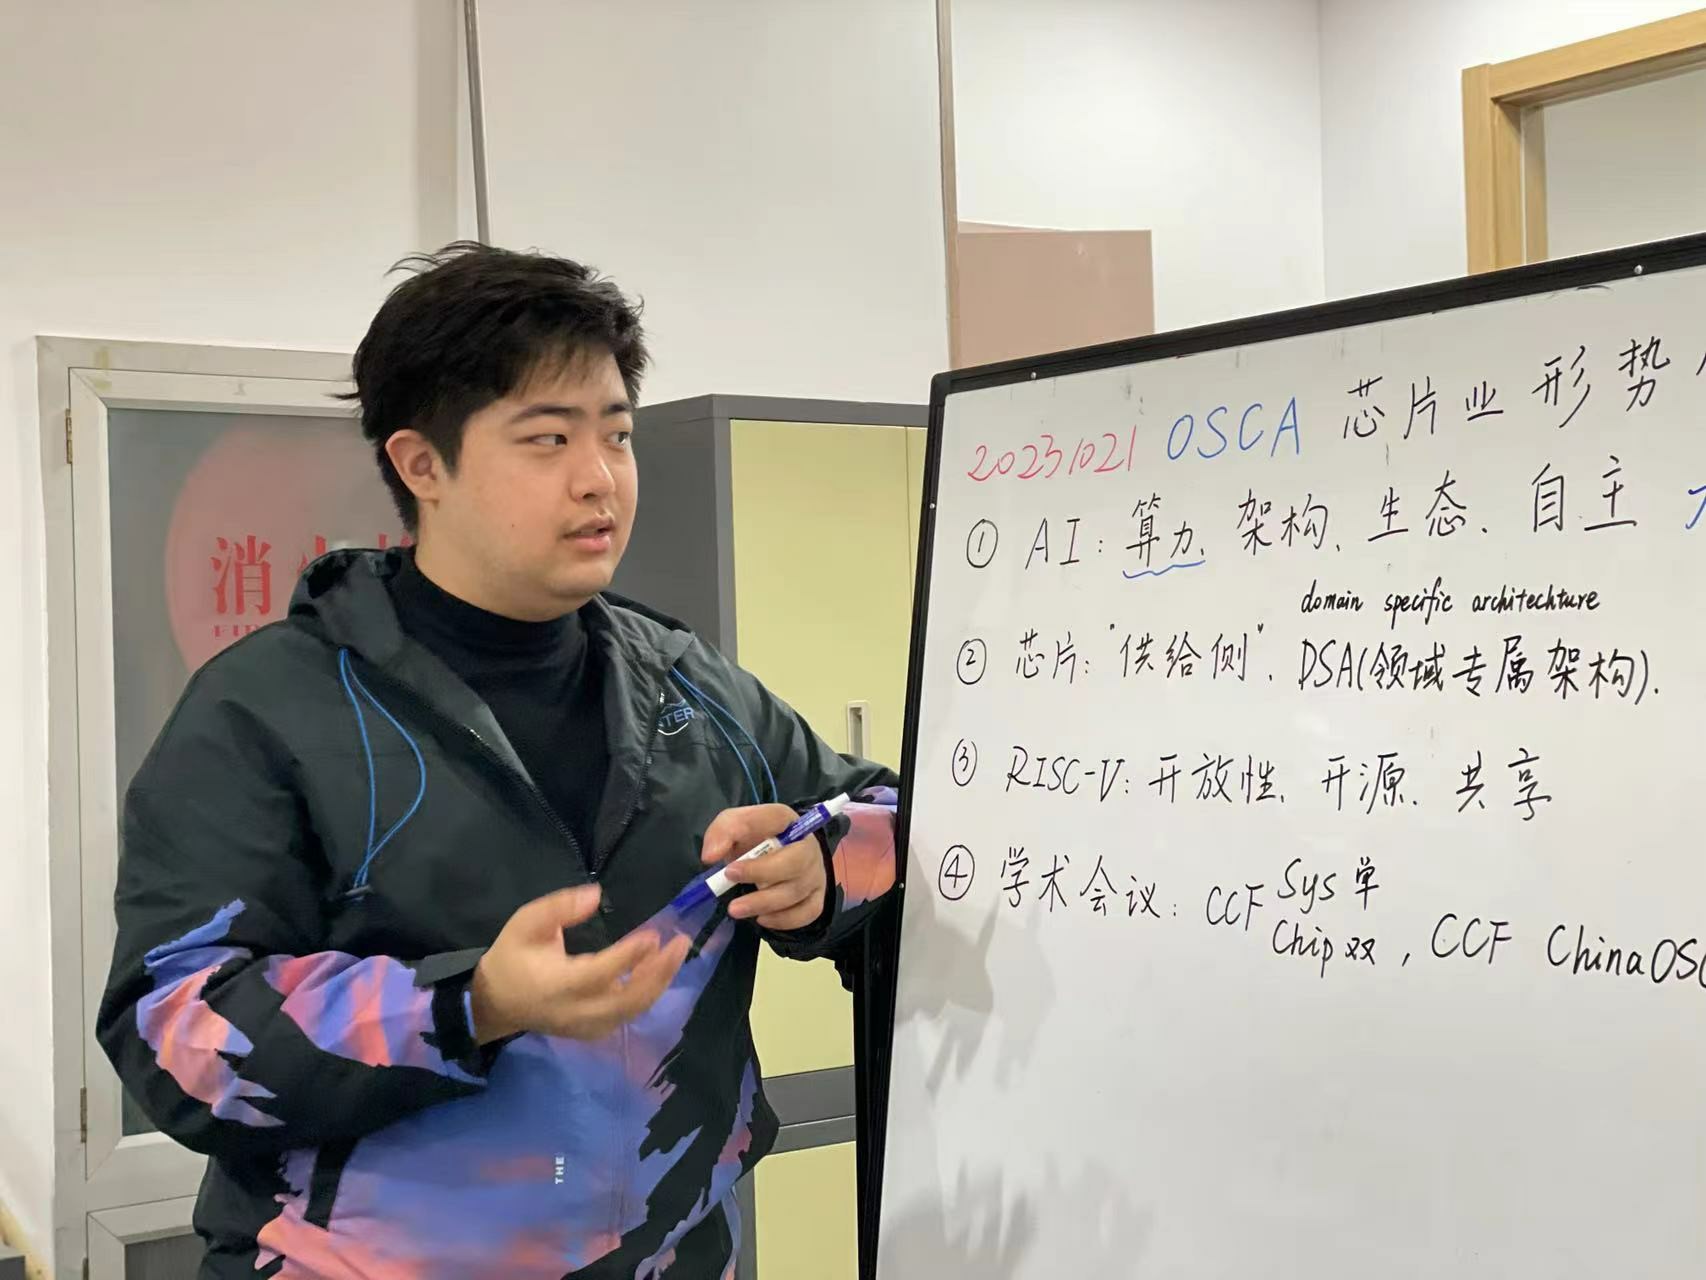 消火栓
TER
THE
20231021 OSCA 芯片业形势
① AI：算力、架构、生态、自主
domain specific architechture
② 芯片："供给侧"．DSA(领域专属架构)．
③ RISC-V：开放性、开源．共享
④ 学术会议：CCF Sys 单
Chip 双 , CCF ChinaOSC